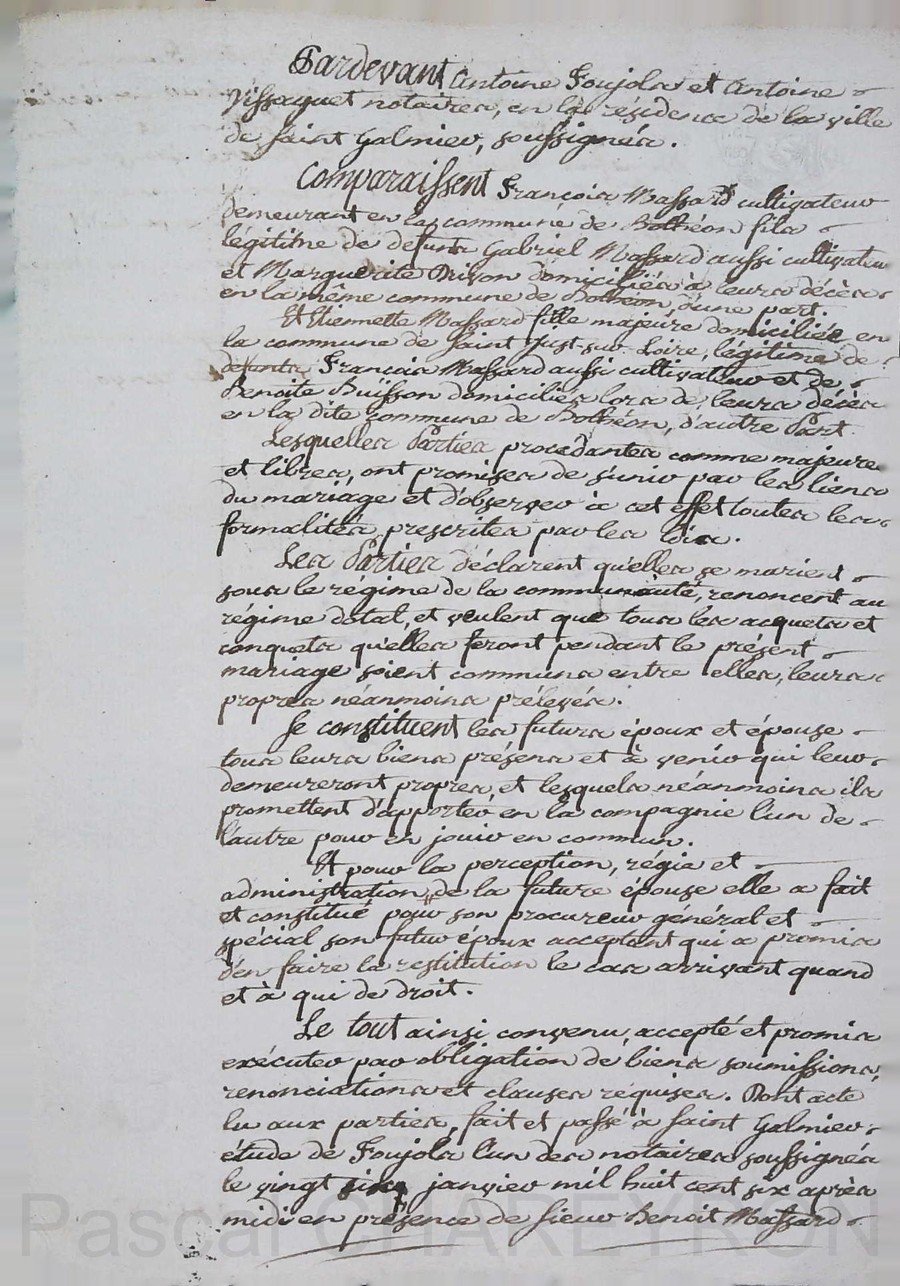 Pardevant Antoine Foujols et Antoine
Vissaguet notaires, en la résidence de la ville
de Saint Galmier, soussignés.
Comparaissent François Massard cultivateur
demeurant en la commune de Bothéon fils
légitime de defunts Gabriel Massard aussi cultivateur
et Marguerite domiciliés à leurs décès
en la même commune de Bothéon d'une part.
Et Etiennette Massard fille majeure domiciliée en
la commune de Saint Just sur Loire, légitime de
défunts François Massard aussi cultivateur et de
Benoite Buisson domiciliés lors de leurs décès
en la dite commune de Bothéon, d'autre Part.
Lesquelles Parties procédantes comme majeures
et libres, ont promises de s'unir par les liens
du mariage et d'observer à cet effet toutes les
formalités prescrites par les lois.
Les Parties déclarent qu'elles se marient
sous le régime de la communauté, renoncent au
régime dotal, et veulent que tous les acquets et
conquets qu'elles feront pendant le présent
mariage soient communs entre elles, leurs
propres néanmoins prélevés.
Se constituent les futurs époux et épouse
tous leurs biens présens et à venir qui leur
demeureront propres, et lesquels néanmoins ils
promettent d'apporter en la compagnie l'un de
l'autre pour en jouir en commun.
Et pour la perception, régie et
administration de la future épouse elle a fait
et constitué pour son procureur général et
spécial son futur époux acceptant qui a promis
d'en faire la restitution le cas arrivant quand
et à qui de droit.
Le tout ainsi convenu, accepté et promis
exécuter par obligation de biens soumissions,
renonciations et clauses requises. Dont acte
lu aux parties, fait et passé à Saint Galmier
étude de Foujols l'un des notaires soussignés
le vingt janvier mil huit cent six après
midi en présence de sieur Benoit Massard
Pascal CHAREYRON